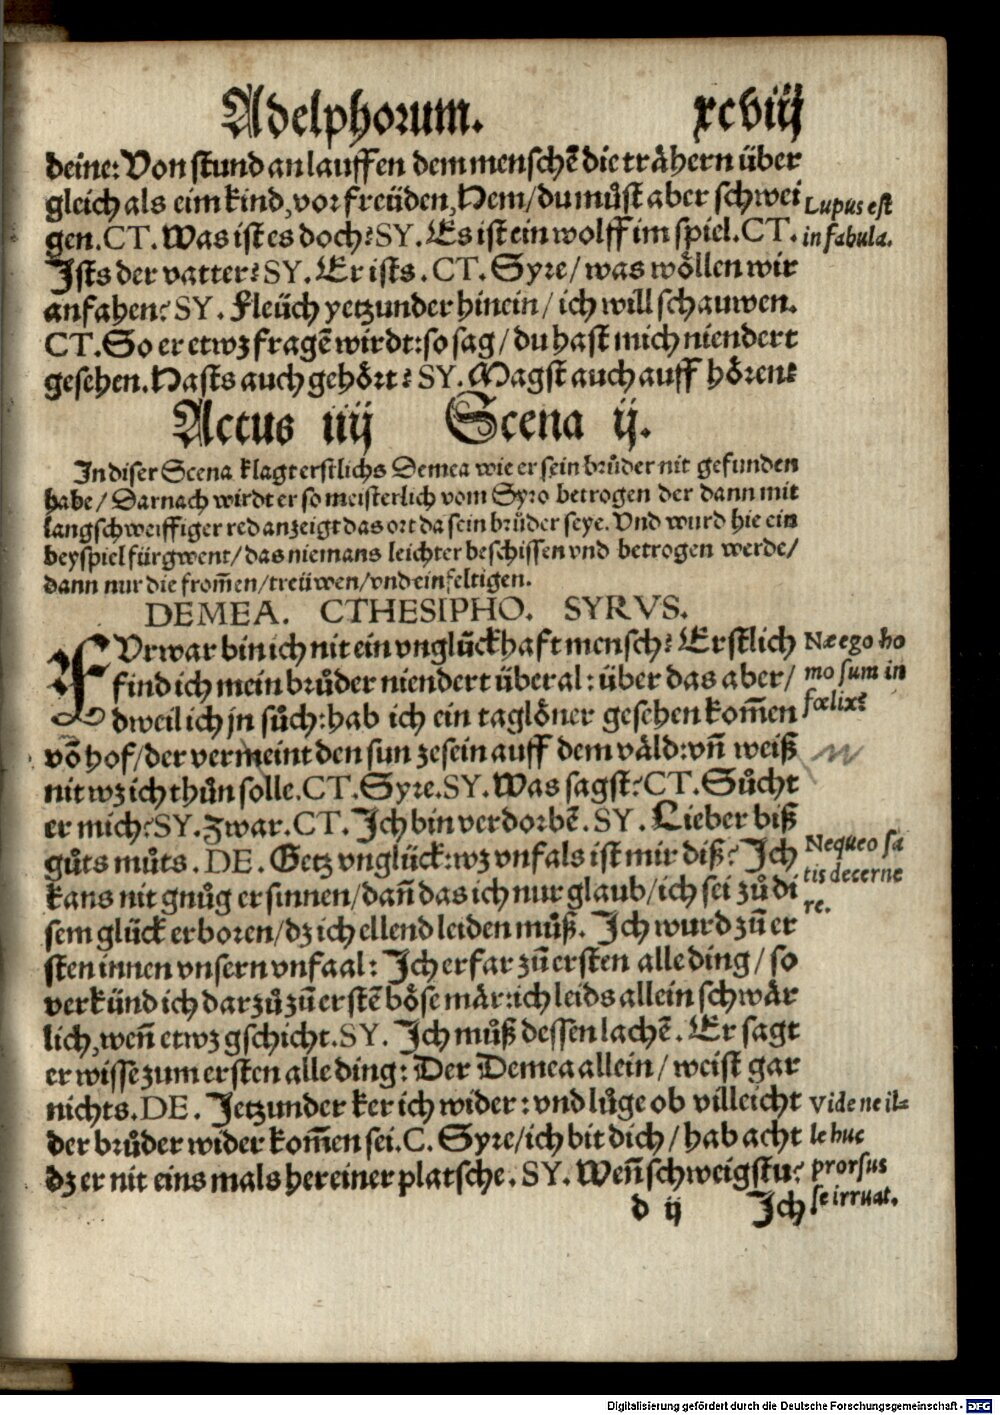 Adelphorum. xcviij
deine: Von stund an lauffen dem menschẽ die trähern über
gleich als eim kind, vor freüden, Hem/ du můst aber schwei
gen. CT. Was ist es doch? SY. Es ist ein wolff im spiel. CT.
Ists der vatter? SY. Er ists. CT. Syre/ was wöllen wir
anfahen? SY. Fleüch yetzunder hinein/ ich will schauwen.
CT. So er etwz fragẽ wirdt: so sag/ du hast mich niendert
gesehen. Hasts auch gehört? SY. Magst auch auff hören?
Lupus est
in fabula.
Actus iiij Scena ij.
In diser Scena klagt erstlichs Demea wie er sein brůder nit gefunden
habe/ Darnach wirdt er so meisterlich vom Syro betrogen der dann mit
langschweiffiger red anzeigt das ort da sein brůder seye. Vnd wurd hie ein
beyspiel fürgwent/ das niemans leichter beschissen vnd betrogen werde/
dann nur die from̃en/ treüwen/ vnd einfeltigen.
DEMEA. CTHESIPHO. SYRVS.
FVrwar bin ich nit ein vnglückhafft mensch? Erstlich
find ich mein brůder niendert überal: über das aber/
dweil ich jn sůch: hab ich ein taglöner gesehen kom̃en
võ hof/ der vermeint den sun ze sein auff dem väld: vñ weiß
nit wz ich thůn solle. CT. Syre. SY. Was sagst? CT. Sůcht
er mich? SY. Zwar. CT. Ich bin verdorbẽ. SY. Lieber biß
gůts můts. DE. Getz vnglück: wz vnfals ist mir diß? Ich
kans nit gnůg ersinnen/ dañ das ich nur glaub/ ich sei zů di
sem glück erboren/ dz ich ellend leiden můß. Ich wurd zũ er
sten innen vnsern vnfaal: Ich erfar zũ ersten alle ding/ so
verkünd ich darzů zũ erstẽ böse mär: ich leids allein schwär
lich, weñ etwz gschicht. SY. Ich můß dessen lachẽ. Er sagt
er wisse zum ersten alle ding: Der Demea allein/ weist gar
nichts. DE. Jetzunder ker ich wider: vnd lůge ob villeicht
der brůder wider kom̃en sei. C. Syre/ ich bit dich/ hab acht
dz er nit eins mals her einer platsche. SY. Weñ schweigstu?
Næ ego ho
mo sum in
fœlix?
Nequeo sa
tis decerne
re.
Vide ne il-
le huc
prorsus
se irruat.
d ij Ich
Digitalisierung gefördert durch die Deutsche Forschungsgemeinschaft - DFG